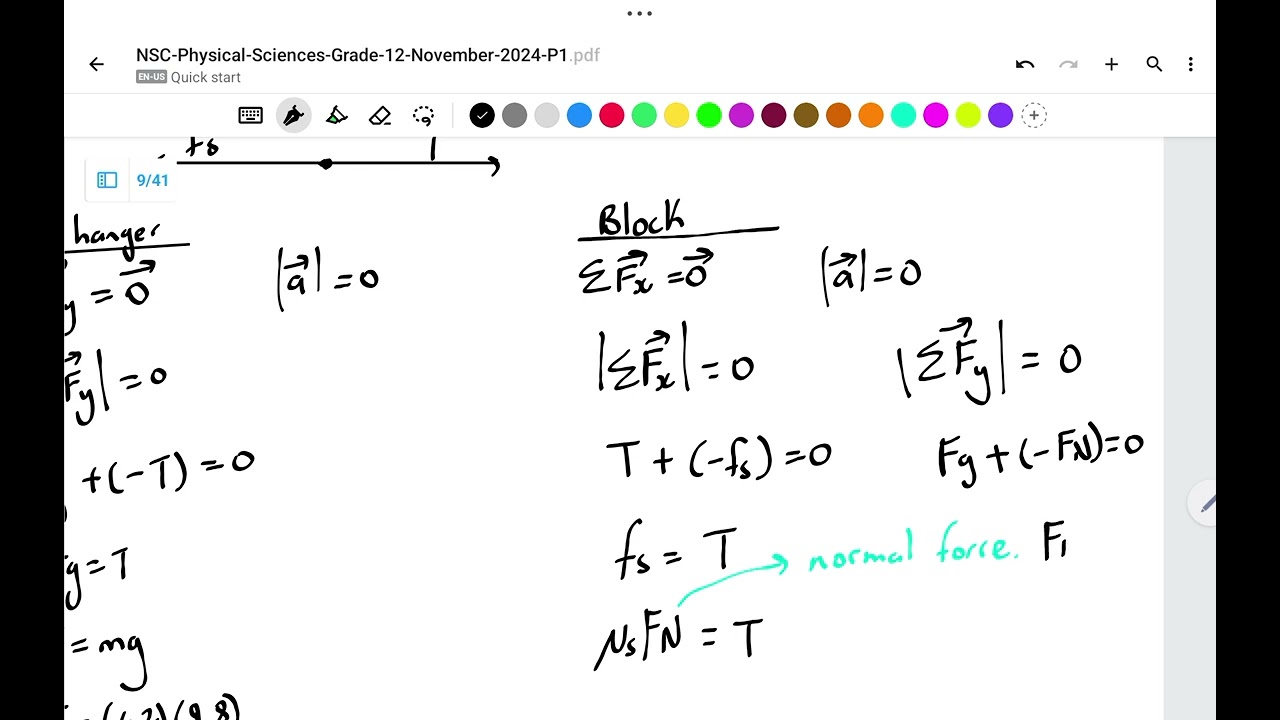 NSC-Physical-Sciences-Grade-12-November-2024-P1.pdf
EN-US Quick start
fs
9/41
hanger
y = 0⃗
|a⃗| = 0
F⃗y| = 0
+(-T) = 0
g = T
= mg
Block
ΣF⃗x = 0⃗
|a⃗| = 0
|ΣF⃗x| = 0
|ΣF⃗y| = 0
T + (-fs) = 0
Fg + (-FN) = 0
fs = T
normal force. F
μsFN = T